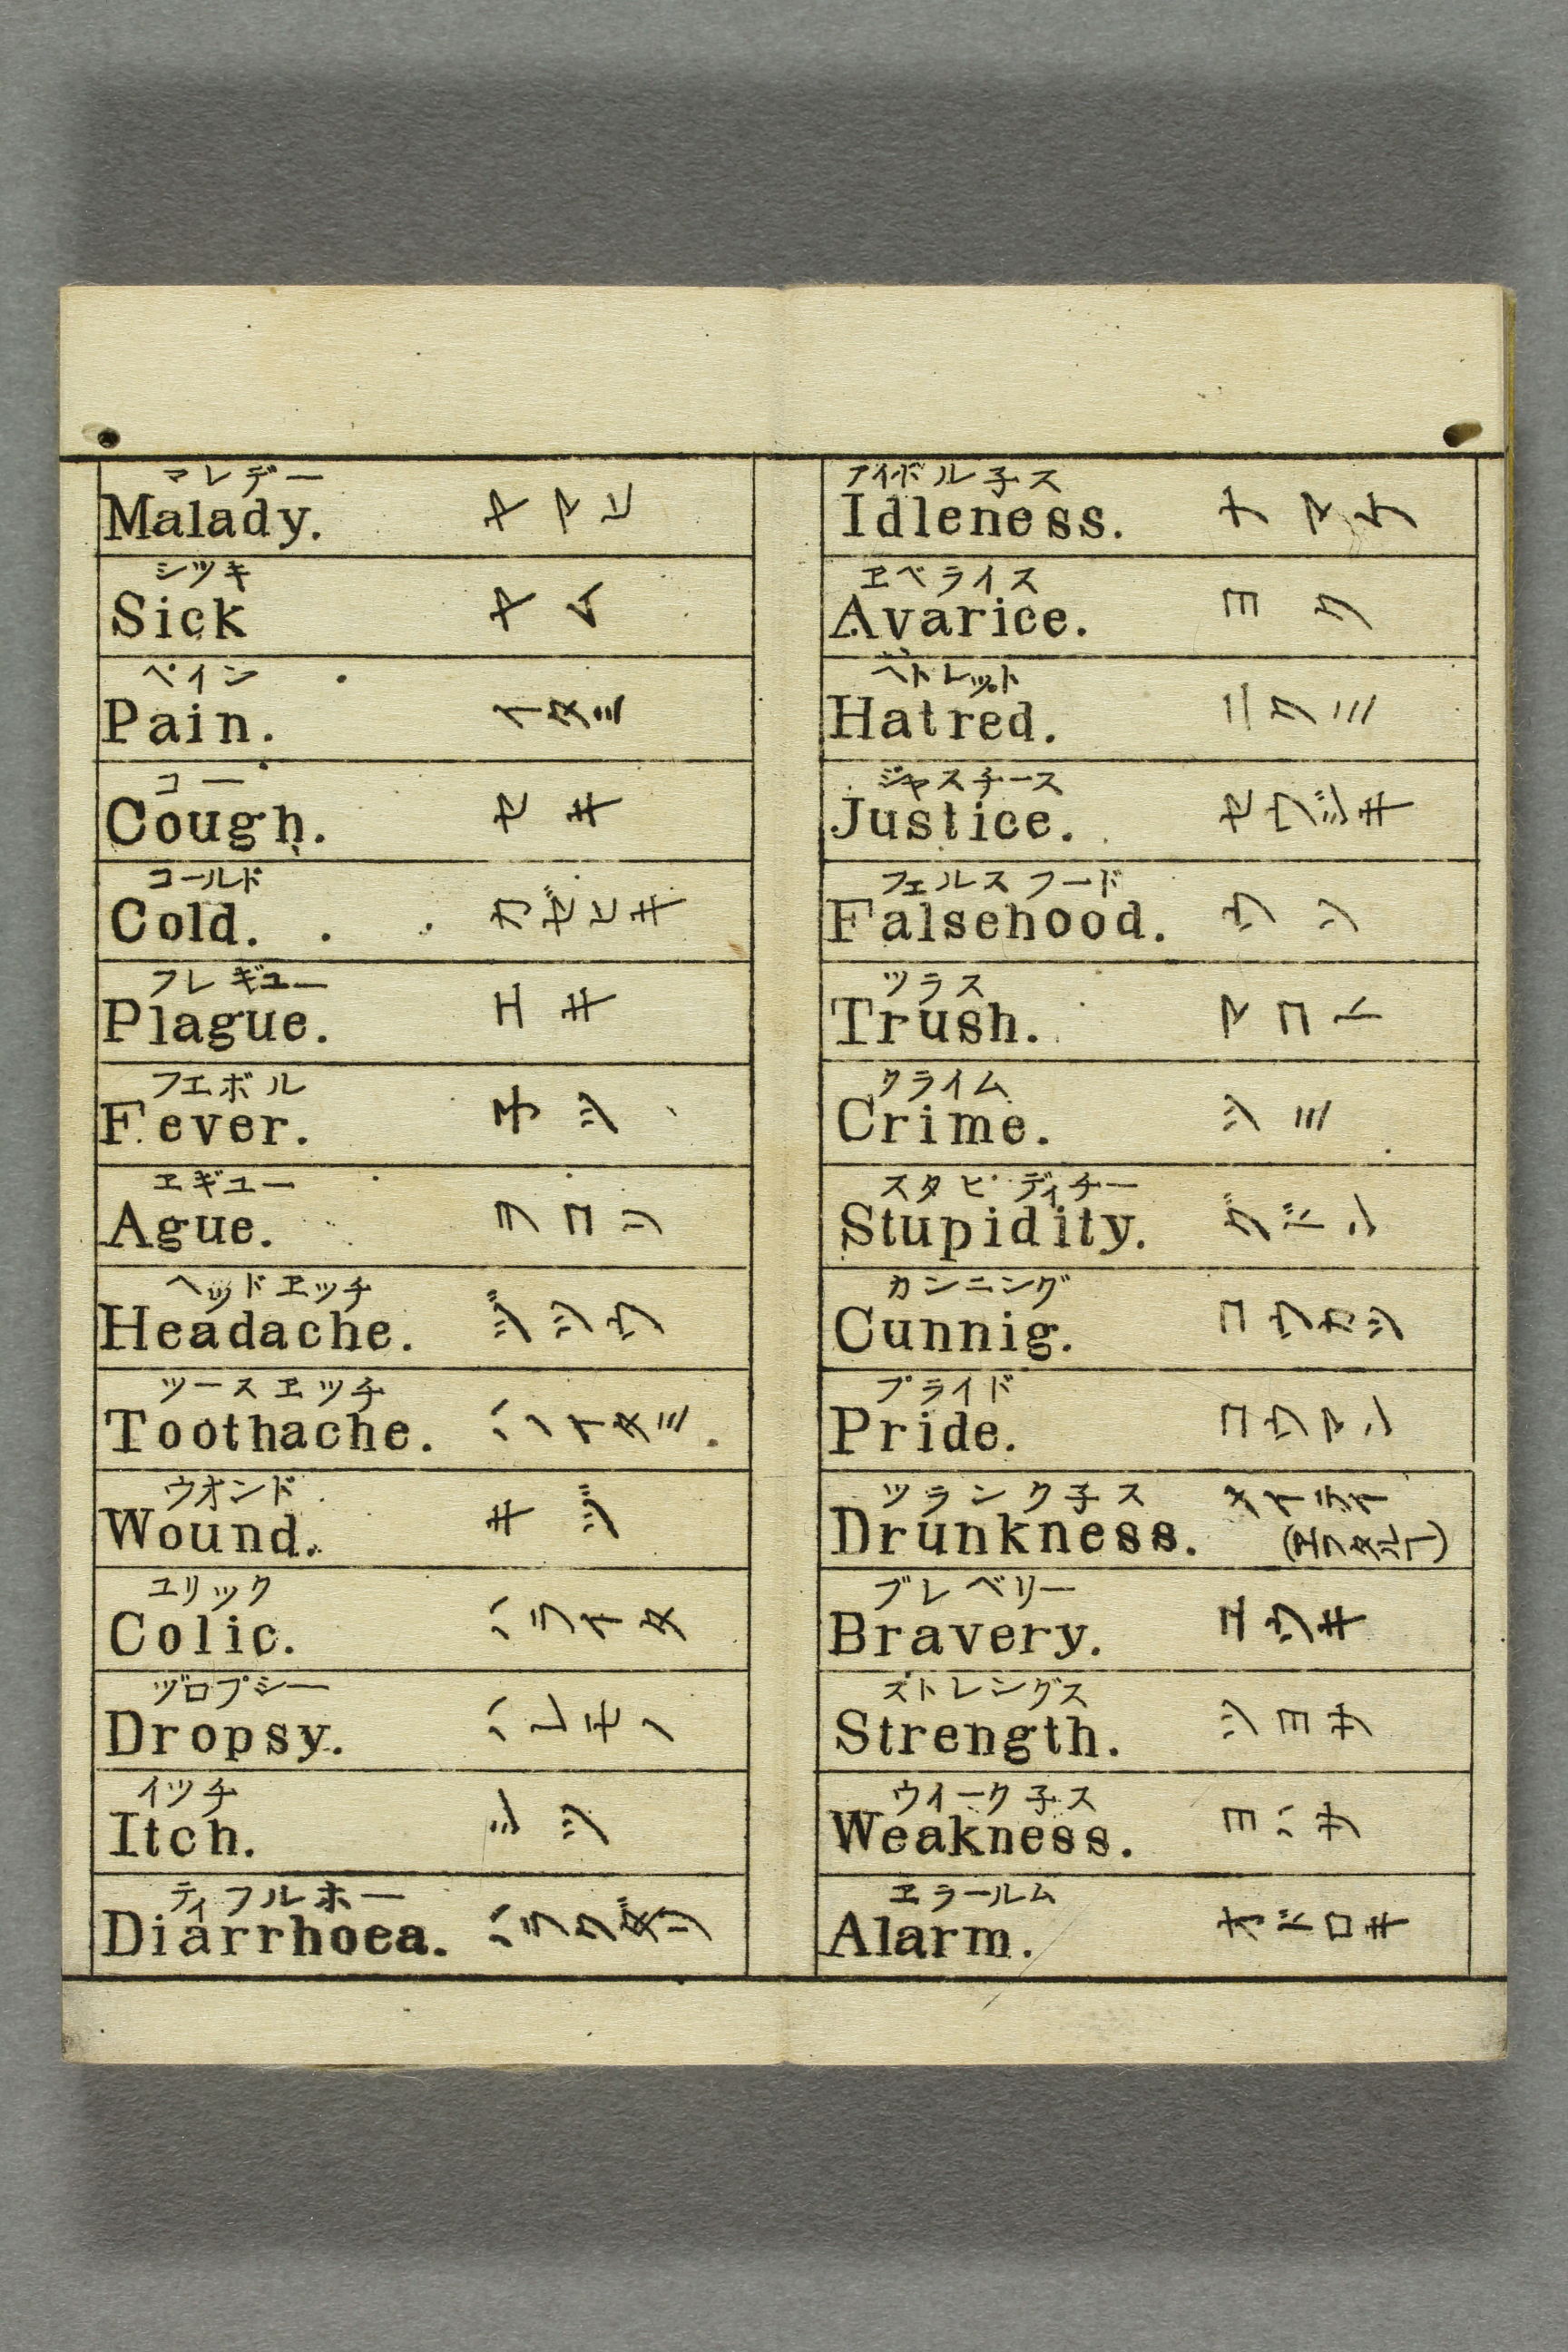 マレデー
Malady. ヤマヒ
シツキ
Sick ヤム
ペイン
Pain. イタミ
コー
Cough. セキ
コールド
Cold. カゼヒキ
フレギユー
Plague. エキ
フエボル
Fever. 子ツ
ヱギユー
Ague. ヲコリ
ヘッドヱッチ
Headache. ヅツウ
ツースヱツチ
Toothache. ハノイタミ
ウオンド
Wound. キズ
ユリック
Colic. ハライタ
ヅロプシー
Dropsy. ハレモノ
イツチ
Itch. シツ
ディフルホー
Diarrhoea. ハラクダリ
アイドル子ス
Idleness. ナマケ
ヱベライス
Avarice. ヨク
ヘトレット
Hatred. ニクミ
ジヤスチース
Justice. セウジキ
フェルスフード
Falsehood. ウソ
ツラス
Trush. マコト
クライム
Crime. ツミ
スタピディチー
Stupidity. グドン
カンニング
Cunnig.
プライド
Pride. コウマン
ツランク子ス
Drunkness.
ブレベリー
Bravery. ユウキ
ストレングス
Strength.
ウイーク子ス
Weakness.
ヱラールム
Alarm. オドロキ